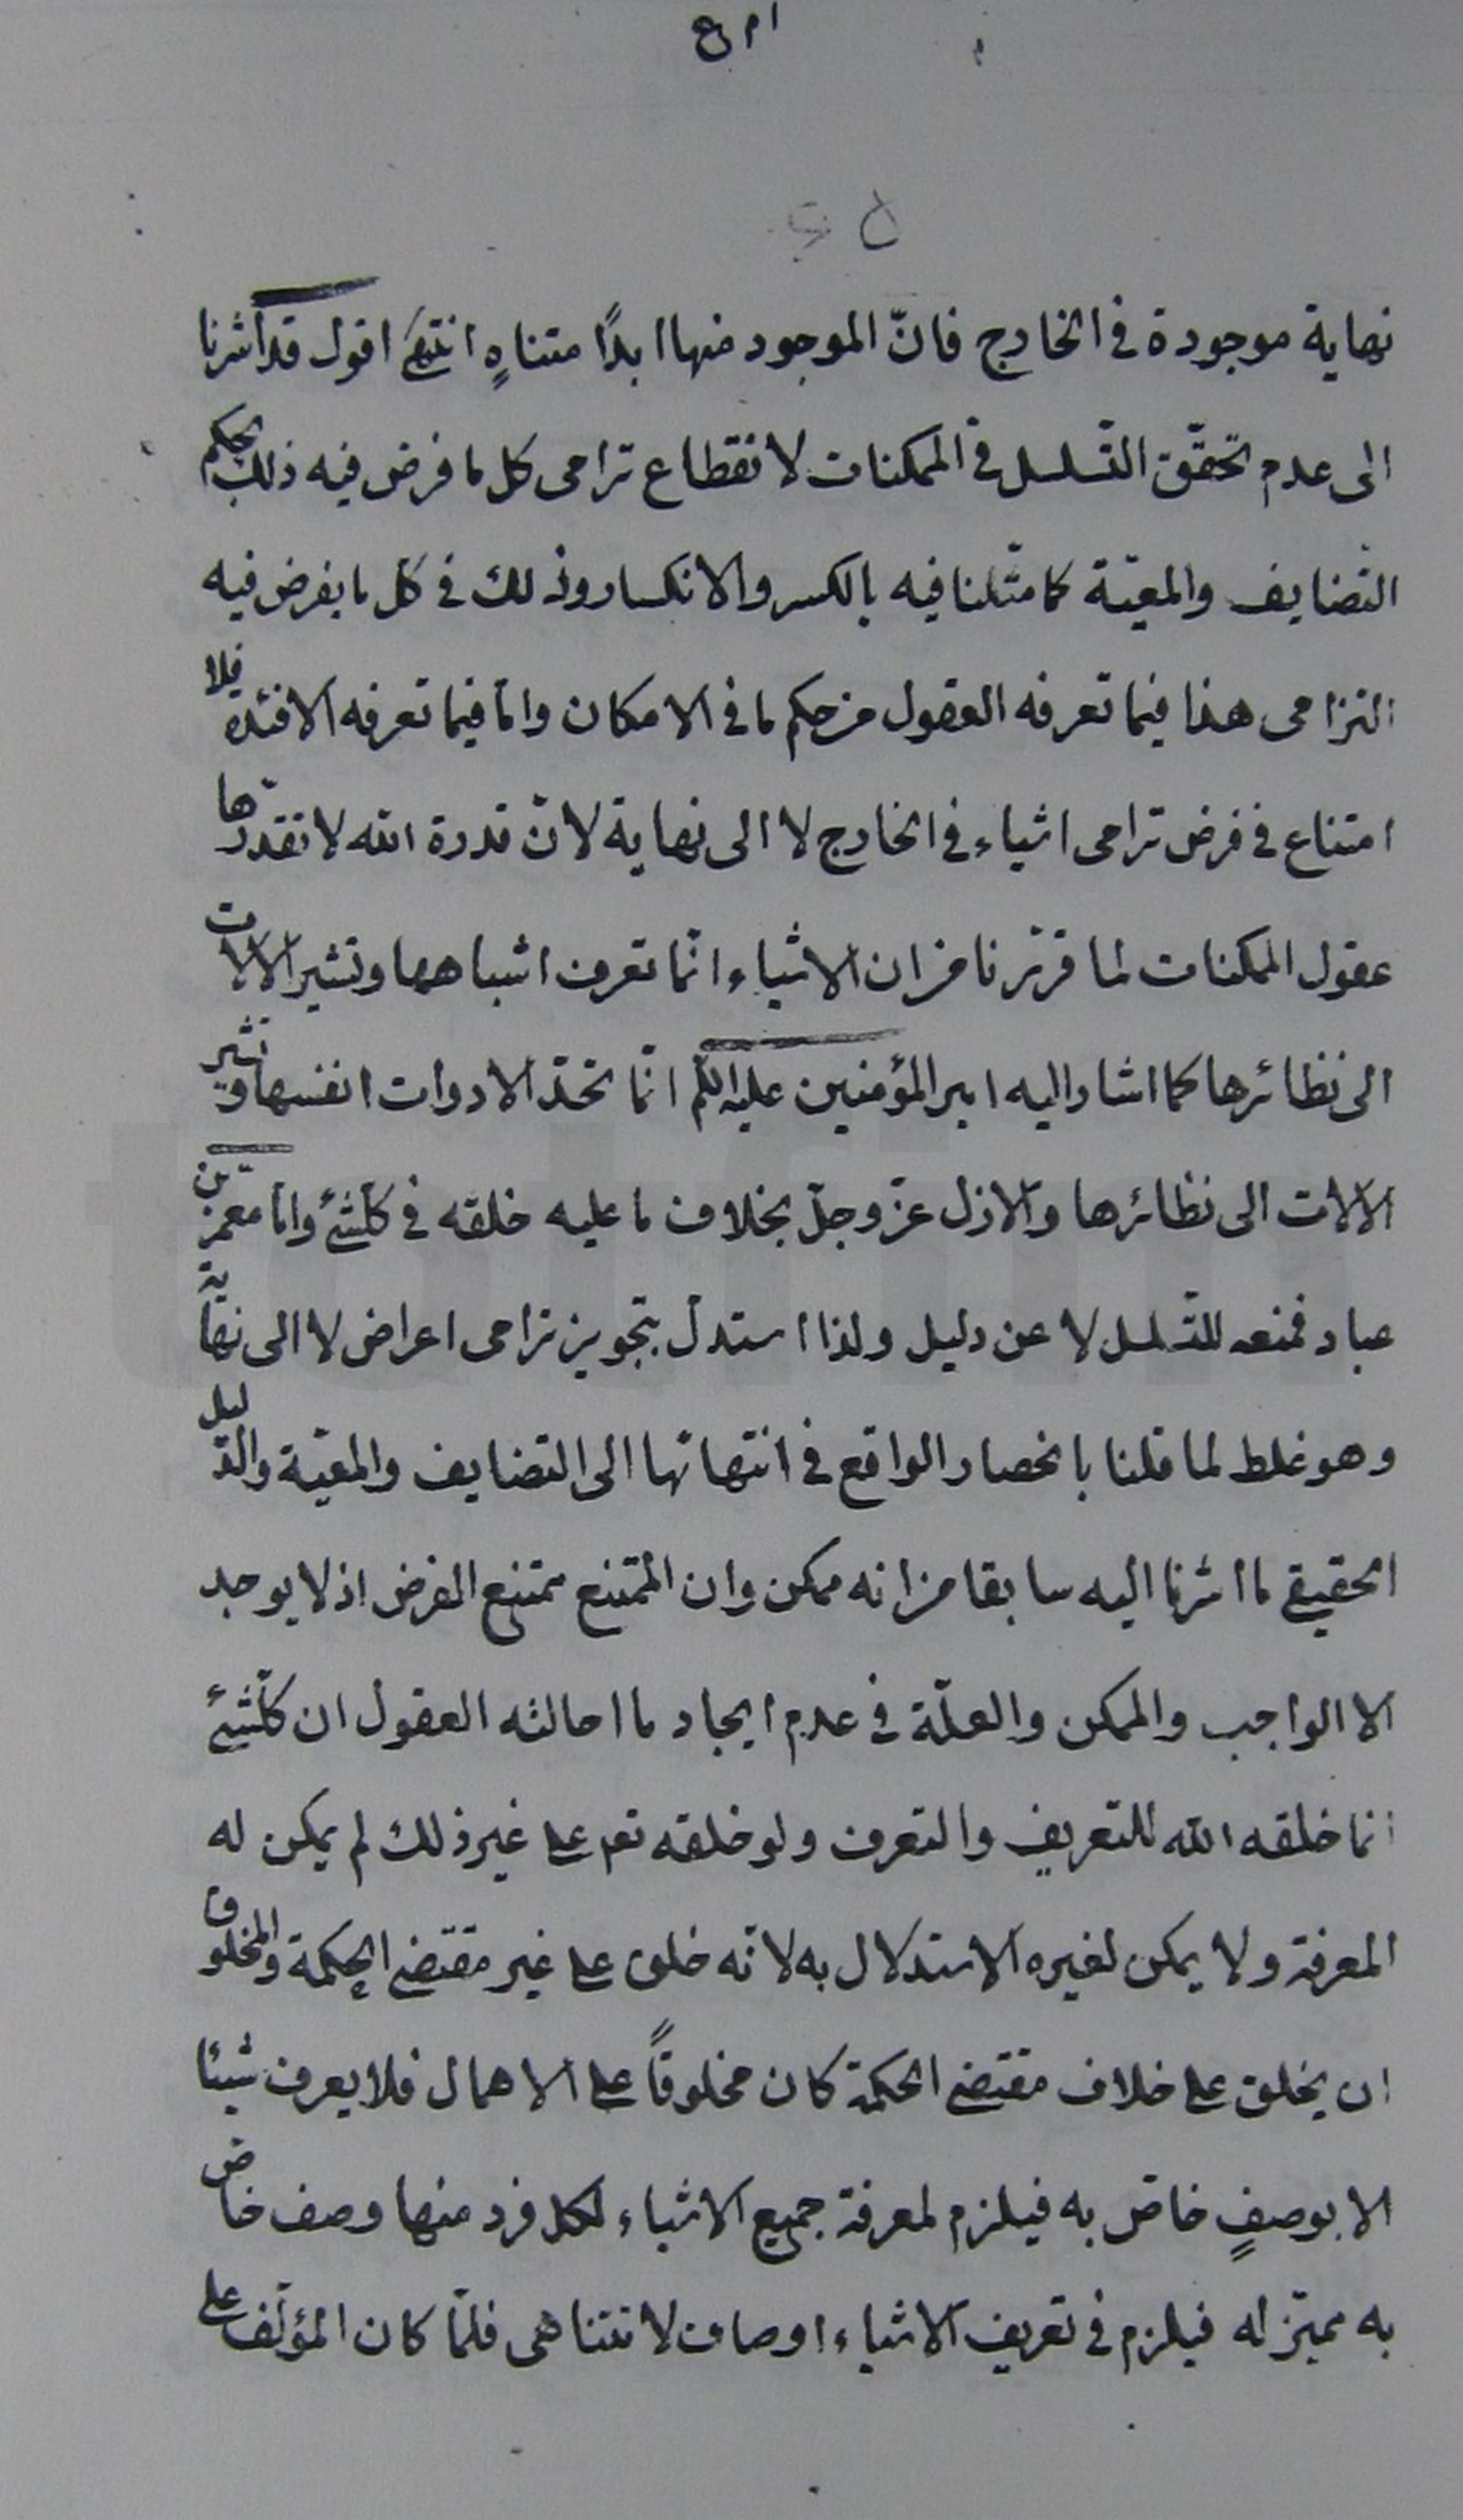 نهاية موجودة في الخارج فانّ الموجود منها ابدًا متناهٍ انتهى اقول قد اشرنا
الى عدم تحقّق التّسلسل في الممكنات لانقطاع ترامى كل ما فرض فيه ذلك بحكم
التضايف والمعيّة كما مثّلنا فيه بالكسر والانكسار وذلك في كل ما يفرض فيه
الترامى هذا فيما تعرفه العقول من حكم ما في الامكان وامّا فيما تعرفه الافئدة فلا
امتناع في فرض ترامى اشياء في الخارج لا الى نهاية لانّ قدرة الله لا تقدّرها
عقول الممكنات لما قرّرنا من ان الاشياء انّما تعرف اشباهها وتشير الالات
الى نظائرها كما اشار اليه امير المؤمنين عليه السلم انّما تحدّ الادوات انفسها وتشير
الالات الى نظائرها والازل عزّ وجلّ بخلاف ما عليه خلقه في كلّشئ وامّا معمّر بن
عباد فمنعه للتّسلسل لا عن دليل ولذا استدلّ بتجويز ترامى اعراض لا الى نهاية
وهو غلط لما قلنا بانحصار الواقع في انتهائها الى التضايف والمعيّة والدّليل
الحقيقي ما اشرنا اليه سابقا من انه ممكن وان الممتنع ممتنع الفرض اذ لا يوجد
الا الواجب والممكن والعلّة في عدم ايجاد ما احالته العقول ان كلّشئ
انما خلقه الله للتعريف والتعرف ولو خلقه تعم على غير ذلك لم يمكن له
المعرفة ولا يمكن لغيره الاستدلال به لانّه خلق على غير مقتضى الحكمة والمخلوق
ان يخلق على خلاف مقتضى الحكمة كان مخلوقاً على الاهمال فلا يعرف شيئا
الا بوصفٍ خاصّ به فيلزم لمعرفة جميع الاشياء لكل فرد منها وصف خاصّ
به مميّز له فيلزم في تعريف الاشياء اوصاف لا تتناهى فلمّا كان المؤلّف على